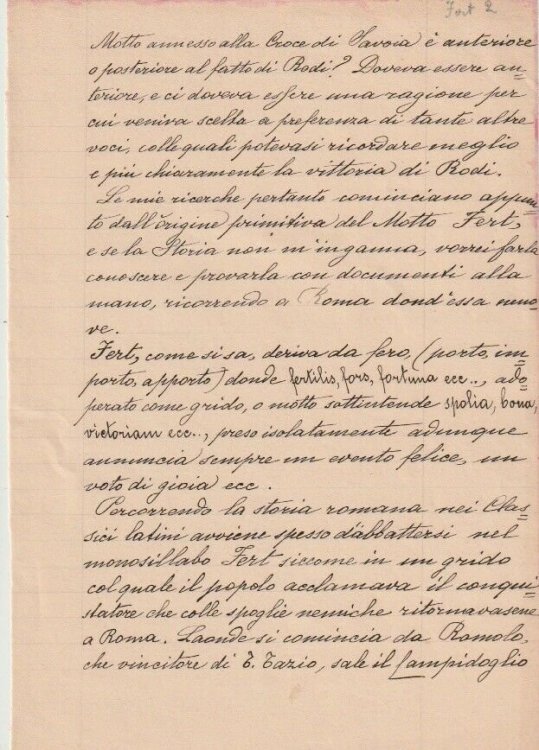 Fert 2
Motto annesso alla Croce di Savoia è anteriore
o posteriore al fatto di Rodi? Doveva essere an=
teriore, e ci doveva essere una ragione per
cui veniva scelta a preferenza di tante altre
voci, colle quali potevasi ricordare meglio
e più chiaramente la vittoria di Rodi.
Le mie ricerche pertanto cominciano appun=
to dall'origine primitiva del Motto Fert,
e se la Storia non m'inganna, vorrei farla
conoscere e provarla con documenti alla
mano, ricorrendo a Roma dond'essa muo=
ve.
Fert, come si sa, deriva da fero, (porto, im=
porto, apporto) donde fertilis, fors, fortuna ecc.., ado=
perato come grido, o motto sottintende spolia, bona,
victoriam ecc.., preso isolatamente adunque
annuncia sempre un evento felice, un
voto di gioia ecc.
Percorrendo la storia romana nei Clas=
sici latini avviene spesso d'abbattersi nel
monosillabo Fert siccome in un grido
col quale il popolo acclamava il conqui=
statore che colle spoglie nemiche ritornavasene
a Roma. Laonde si comincia da Romolo,
che vincitore di T. Tazio, sale il Campidoglio